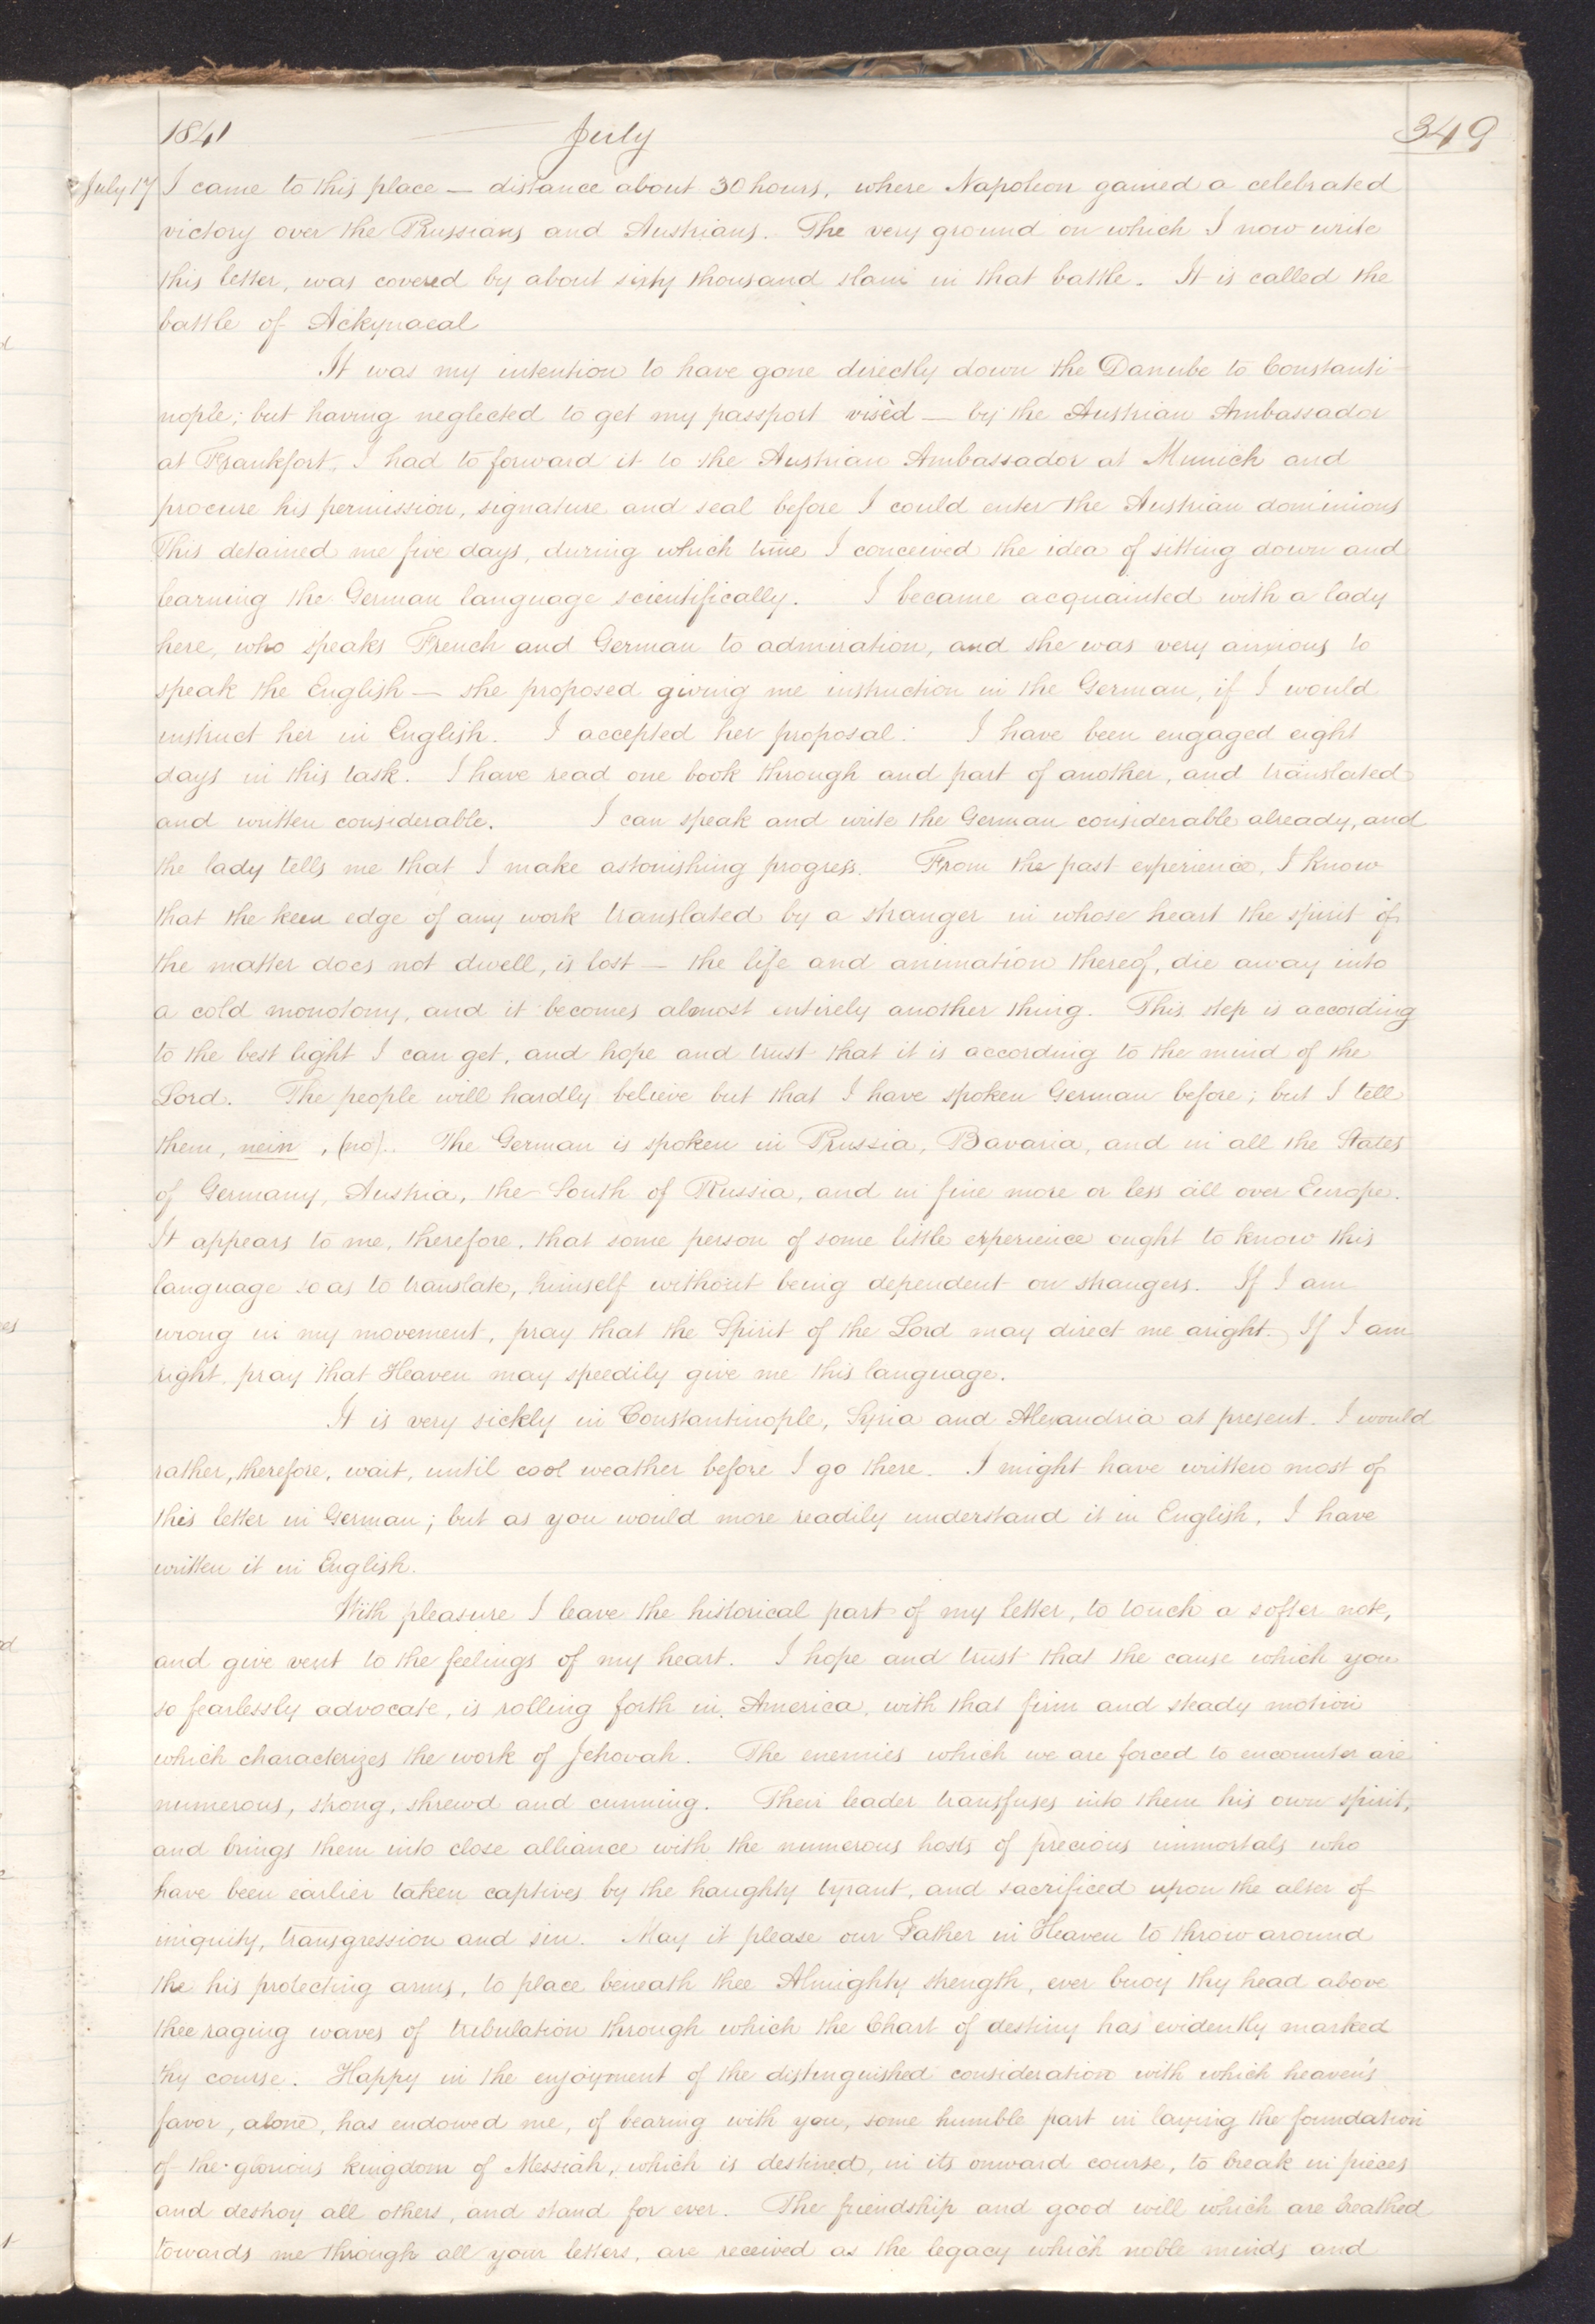 1841 July 349
July 17 I came to this place — distance about 30 hours, where Napoleon gained a celebrated
victory over the Prussians and Austrians. The very ground on which I now write
this letter, was covered by about sixty thousand slain in that battle. It is called the
battle of Ackynacal
It was my intention to have gone directly down the Danube to Constanti
nople; but having neglected to get my passport visèd — by the Austrian Ambassador
at Frankfort, I had to forward it to the Austrian Ambassador at Munich and
procure his permission, signature and seal before I could enter the Austrian dominions
This detained me five days, during which time I conceived the idea of sitting down and
learning the German language scientifically. I became acquainted with a lady
here, who speaks French and German to admiration, and she was very anxious to
speak the English — she proposed giving me instruction in the German, if I would
instruct her in English. I accepted her proposal. I have been engaged eight
days in this task. I have read one book through and part of another, and translated
and written considerable. I can speak and write the German considerable already, and
the lady tells me that I make astonishing progress. From the past experience, I know
that the keen edge of any work translated by a stranger in whose heart the spirit of
the matter does not dwell, is lost — the life and animation thereof, die away into
a cold monotony, and it becomes almost entirely another thing. This step is according
to the best light I can get, and hope and trust that it is according to the mind of the
Lord. The people will hardly believe but that I have spoken German before; but I tell
them, nein, (no). The German is spoken in Prussia, Bavaria, and in all the States
of Germany, Austria, the South of Russia, and in fine more or less all over Europe.
It appears to me, therefore, that some person of some little experience ought to know this
language so as to translate, himself without being dependent on strangers. If I am
wrong in my movement, pray that the Spirit of the Lord may direct me aright. If I am
right, pray that Heaven may speedily give me this language.
It is very sickly in Constantinople, Syria and Alexandria at present. I would
rather, therefore, wait, until cool weather before I go there. I might have written most of
this letter in German; but as you would more readily understand it in English, I have
written it in English.
With pleasure I leave the historical part of my letter, to touch a softer note,
and give vent to the feelings of my heart. I hope and trust that the cause which you
so fearlessly advocate, is rolling forth in America, with that firm and steady motion
which characterizes the work of Jehovah. The enemies which we are forced to encounter are
numerous, strong, shrewd and cunning. Their leader transfuses into them his own spirit,
and brings them into close alliance with the numerous hosts of precious immortals who
have been earlier taken captives by the haughty tyrant, and sacrificed upon the alter of
iniquity, transgression and sin. May it please our Father in Heaven to throw around
the his protecting arms, to place beneath thee Almighty strength, ever buoy thy head above
thee raging waves of tribulation through which the Chart of destiny has evidently marked
thy course. Happy in the enjoyment of the distinguished consideration with which heaven's
favor, alone, has endowed me, of bearing with you, some humble part in laying the foundation
of the glorious kingdom of Messiah, which is destined, in its onward course, to break in pieces
and destroy all others, and stand for ever. The friendship and good will which are breathed
towards me through all your letters, are received as the legacy which noble minds and